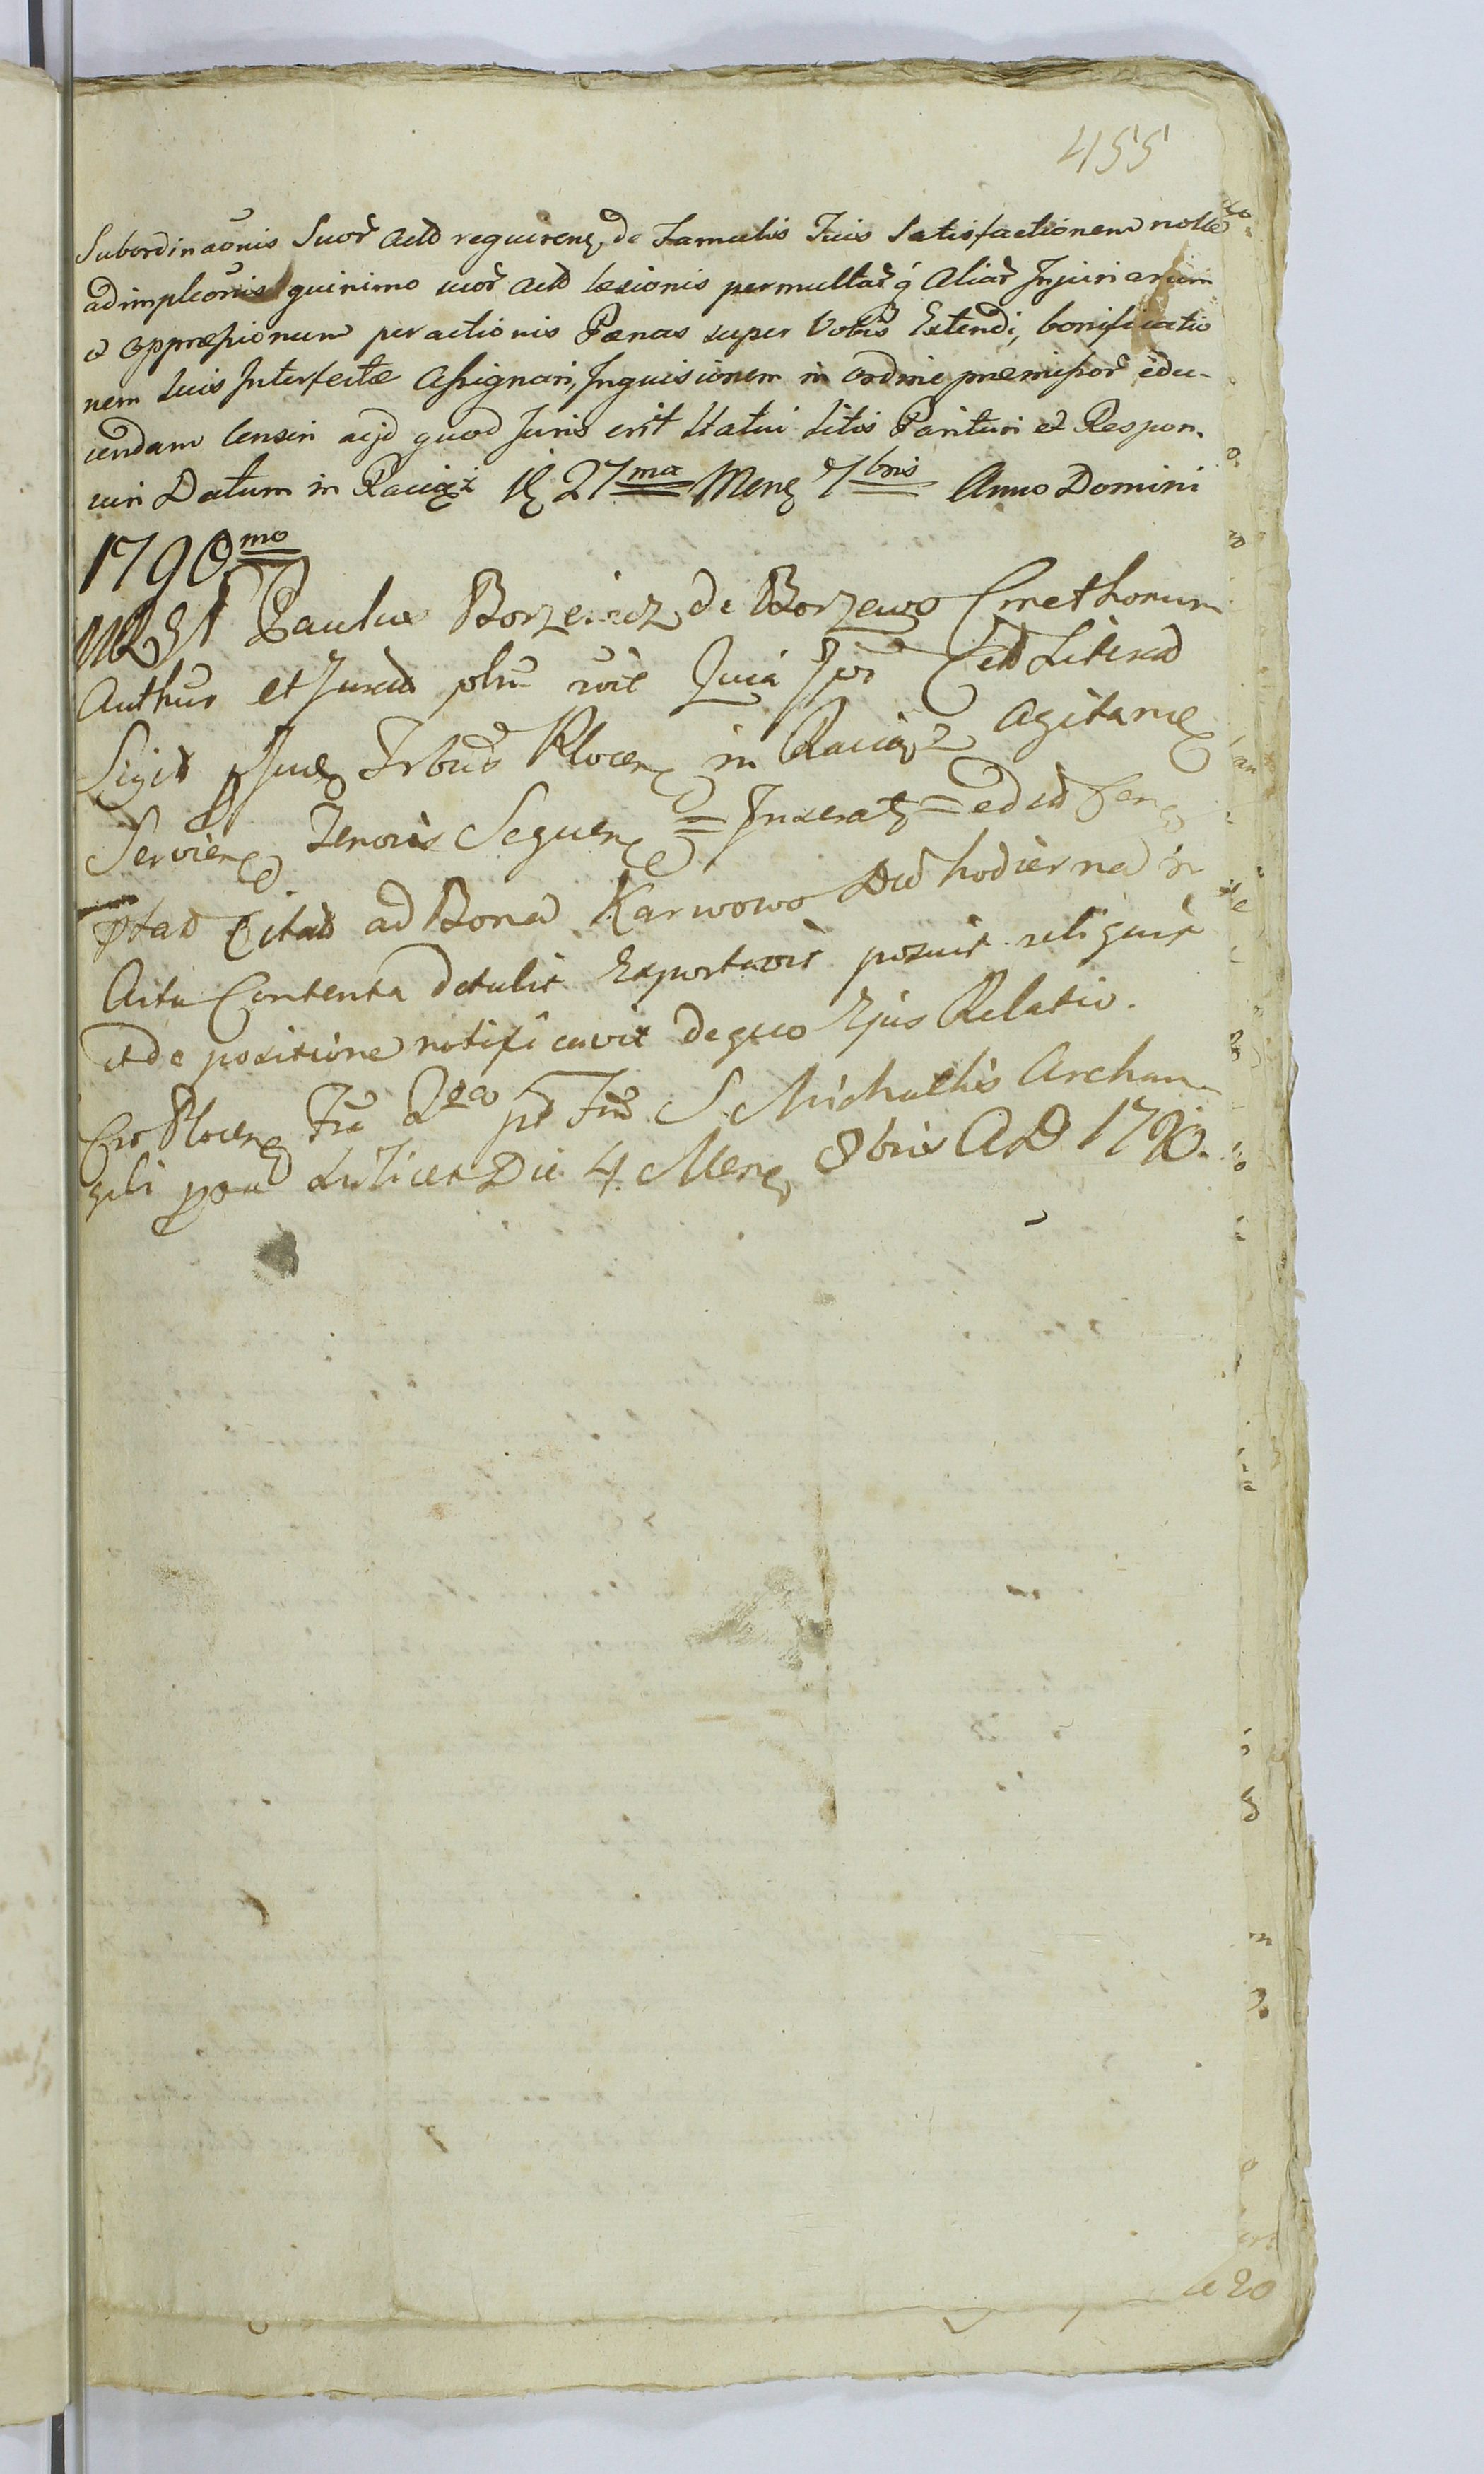 455
Subordinaõnis Suor̃ acto requirenȩ de Famulis Tuis Satisfactionem nolle
adimpleõnis quinimo suor̃ acto læsionis permultar̃ q́ Aliar̃ Injuriarum
et oppræssionum peractionis Pænas super Vobis Extendi, bonificatio
nem suis Interfectæ Assignari, Inquisionem in ordine præmissor̃ edu-
cendam Censeri aijd quod Juris erit Statui Litis Parituri et Respon.
suri Datum in Raciąż 27ma Menȩ 7bris Anno Domini
1790.mo
Paulus de Borzewo Cmethonum
Authus et Jurad Quia Literad
Sigid Judȩ Trbus Plocenȩ in Raciąz Agitanȩ
Servienȩ Tenoris Sequenȩ = Inserat = 
Citad ad Bona Karwowo Die hodierna in
Actu Contenta Detulit Exportavit posuit reliquit
et de positione notificavit de quo Ejus Relatio.
Cro Plocenȩ Fra 2da pt Fm S. Michaelis Archan-
geli Die 4. Menȩ 8bris AD 1790.